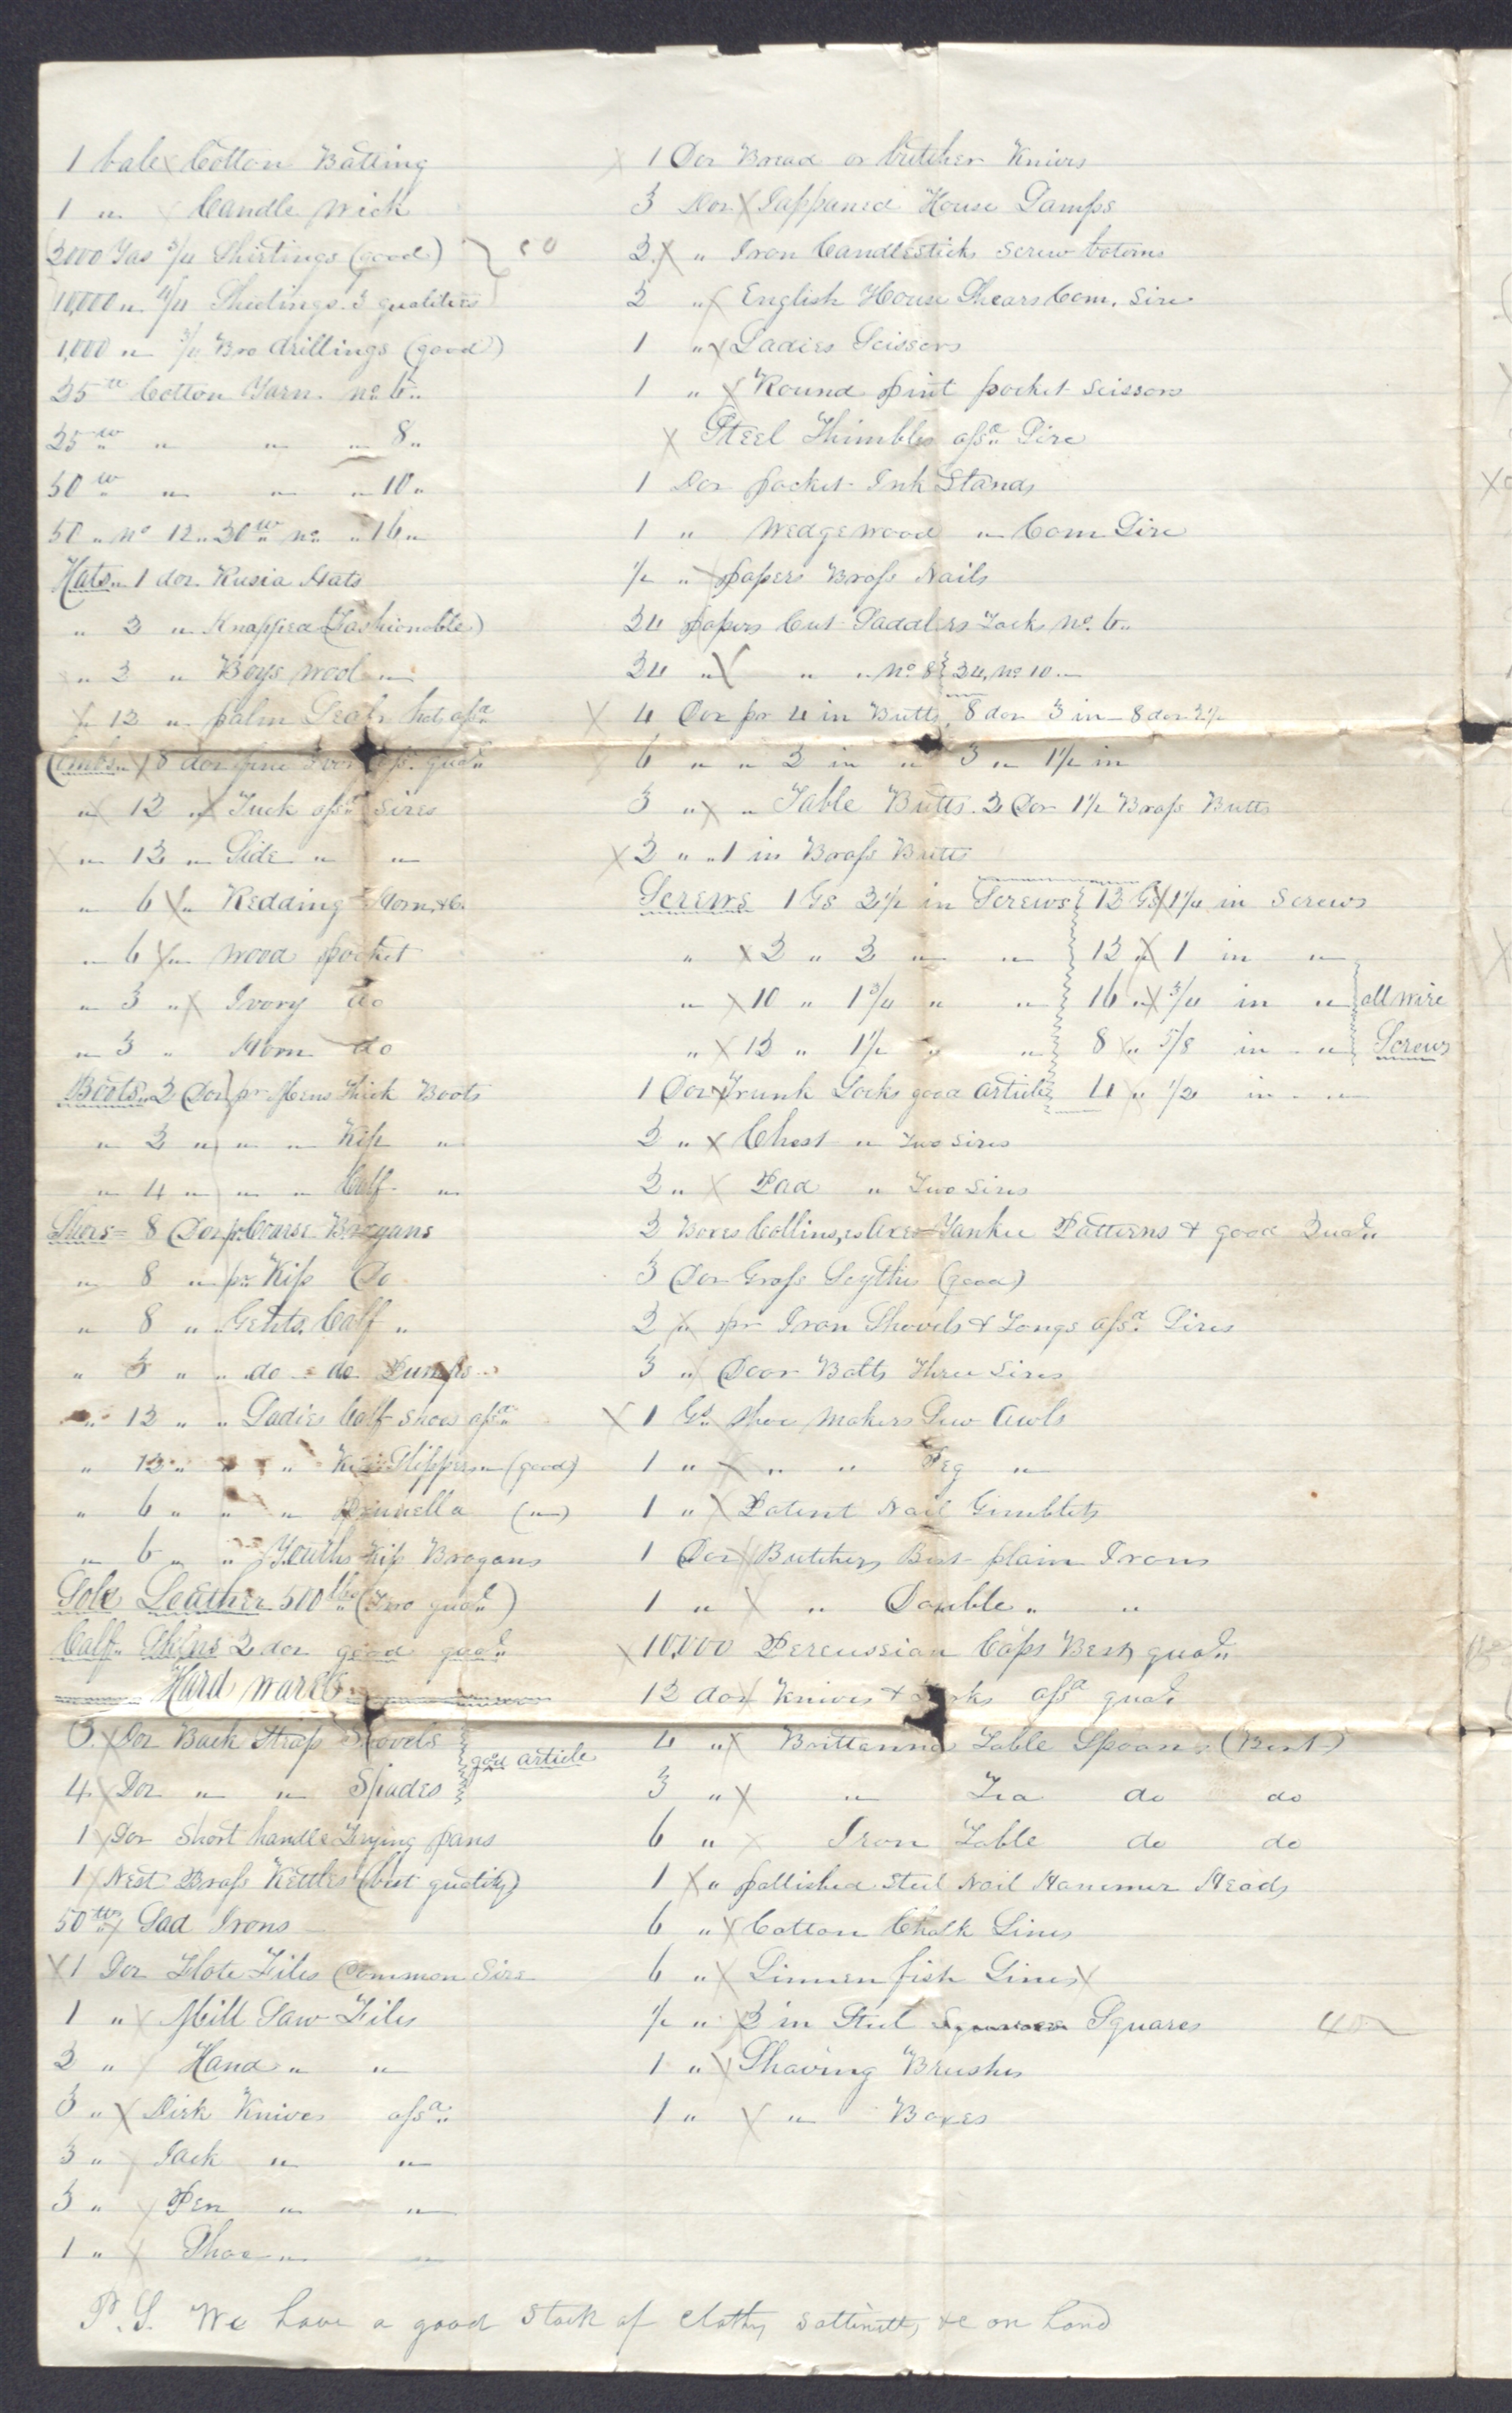 1 bale Cotton Batting
1 " Candle Wick
2000 Yds 3/4 Shirtings (good)
10,000 " 4/4 Sheetings 3 qualities
1,000 " 3/4 Bro drillings (good)
25 lb Cotton Yarn No 6 "
25 lb " " " 8 "
50 lb " " " 10 "
50 " No 12 " 30 lb No " 16 "
Hats " 1 doz Rusia Hats
" 2 " Knapped (Fashionable)
" 2 " Boys Wool "
" 12 " palm Leaf hats assd
Combs " 8 doz fine Ivory ass. quay
" 12 " Tuck assd Sizes
" 12 " Side " "
" 6 " Redding Horn, &c.
" 6 " Wood pocket
" 3 " Ivory do
" 3 " Horn do
Boots " 2 Doz pr Mens Thick Boots
" 2 " " " Kip "
" 4 " " " Calf "
Shoes = 8 Doz pr Coarse Brogans
" 8 " pr Kip Do
" 8 " Gents Calf "
" 3 " " do do Pumps
" 12 " " Ladies Calf Shoes assd
" 12 " " " Kid Slippers " (good)
" 6 " " " Prunella (")
" 6 " " Youths Kip Brogans
Sole Leather 500 lbs (Two quay)
Calf Skins 2 doz good quay
Hard Ware
3 Doz Back Strap Shovels
4 Doz " " Spades } good article
1 Doz Short handle Frying pans
1 Nest Brass Kettles (best quality)
50 lbs Sad Irons
1 Doz Flote Files Common Size
1 " Mill Saw Files
2 " Hand " "
3 " Dirk Knives assd
3 " Jack " "
3 " Pen " "
1 " Shoe " "
1 Doz Bread or butcher Knives
3 Doz Jappaned House Lamps
2 " Iron Candlesticks Screw botoms
2 " English House Shears Com. Size
1 " Ladies Scissors
1 " Round pint pocket Scissors
Steel Thimbles assd Size
1 Doz pocket Ink Stands
1 " Wedgewood " Com Size
1/2 " papers Brass Nails
24 papers Cut Saddlers Tacks No. 6 "
24 " " " No 8 } 24, No 10 "
4 Doz pr 4 in Butts, 8 doz 3 in - 8 doz 2 1/2
6 " " 2 in " 3 " 1 1/2 in
3 " " Table Butts. 2 Doz 1 1/2 Brass Butts
2 " " 1 in Brass Butts
Screws 1 Gs 2 1/2 in Screws } 12 Gs 1 1/4 in Screws
" 2 " 2 " " } 12 " 1 in "
" 10 " 1 3/4 " " } 16 " 3/4 in " } all wire
" 12 " 1 1/2 " " } 8 " 5/8 in " } Screws
1 Doz Trunk Locks good article } 4 " 1/2 in "
2 " Chest " Two Sizes
2 " Pad " Two Sizes
2 Boxes Collins,es Axes Yankee Patterns & good Quay
3 Doz Grass Scythes (good)
2 " pr Iron Shovels & Tongs assd Sizes
3 " Door Bolts Three Sizes
1 Gs Shoe Makers Sew Awls
1 " " " Peg "
1 " Patent Nail Gimblets
1 Doz Butchers Best plain Irons
1 " " Double " "
10,000 Percussian Caps Best quay
12 doz Knives & Forks assd quay
4 " Brittannia Table Spoons (Best)
3 " " Tea do do
6 " Iron Table do do
1 " pollished Steel Nail Hammer Heads
6 " Cotton Chalk Lines
6 " Linnen fish Lines
1/2 " 2 in Steel Squares
1 " Shaving Brushes
1 " " Boxes
P.S. We have a good Stock of Cloths, Sattinetts, &c on hand